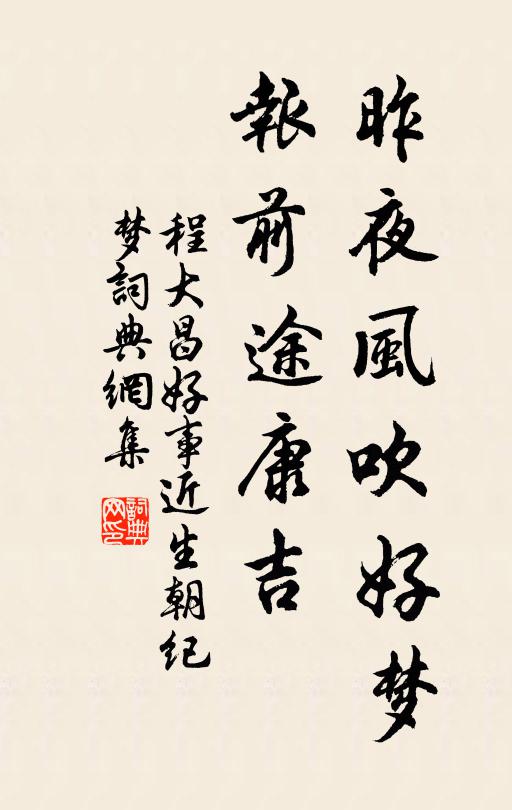 昨夜風吹好梦
報前途康吉
程大昌好事近生朝纪
梦詞典網集
詞典
网印